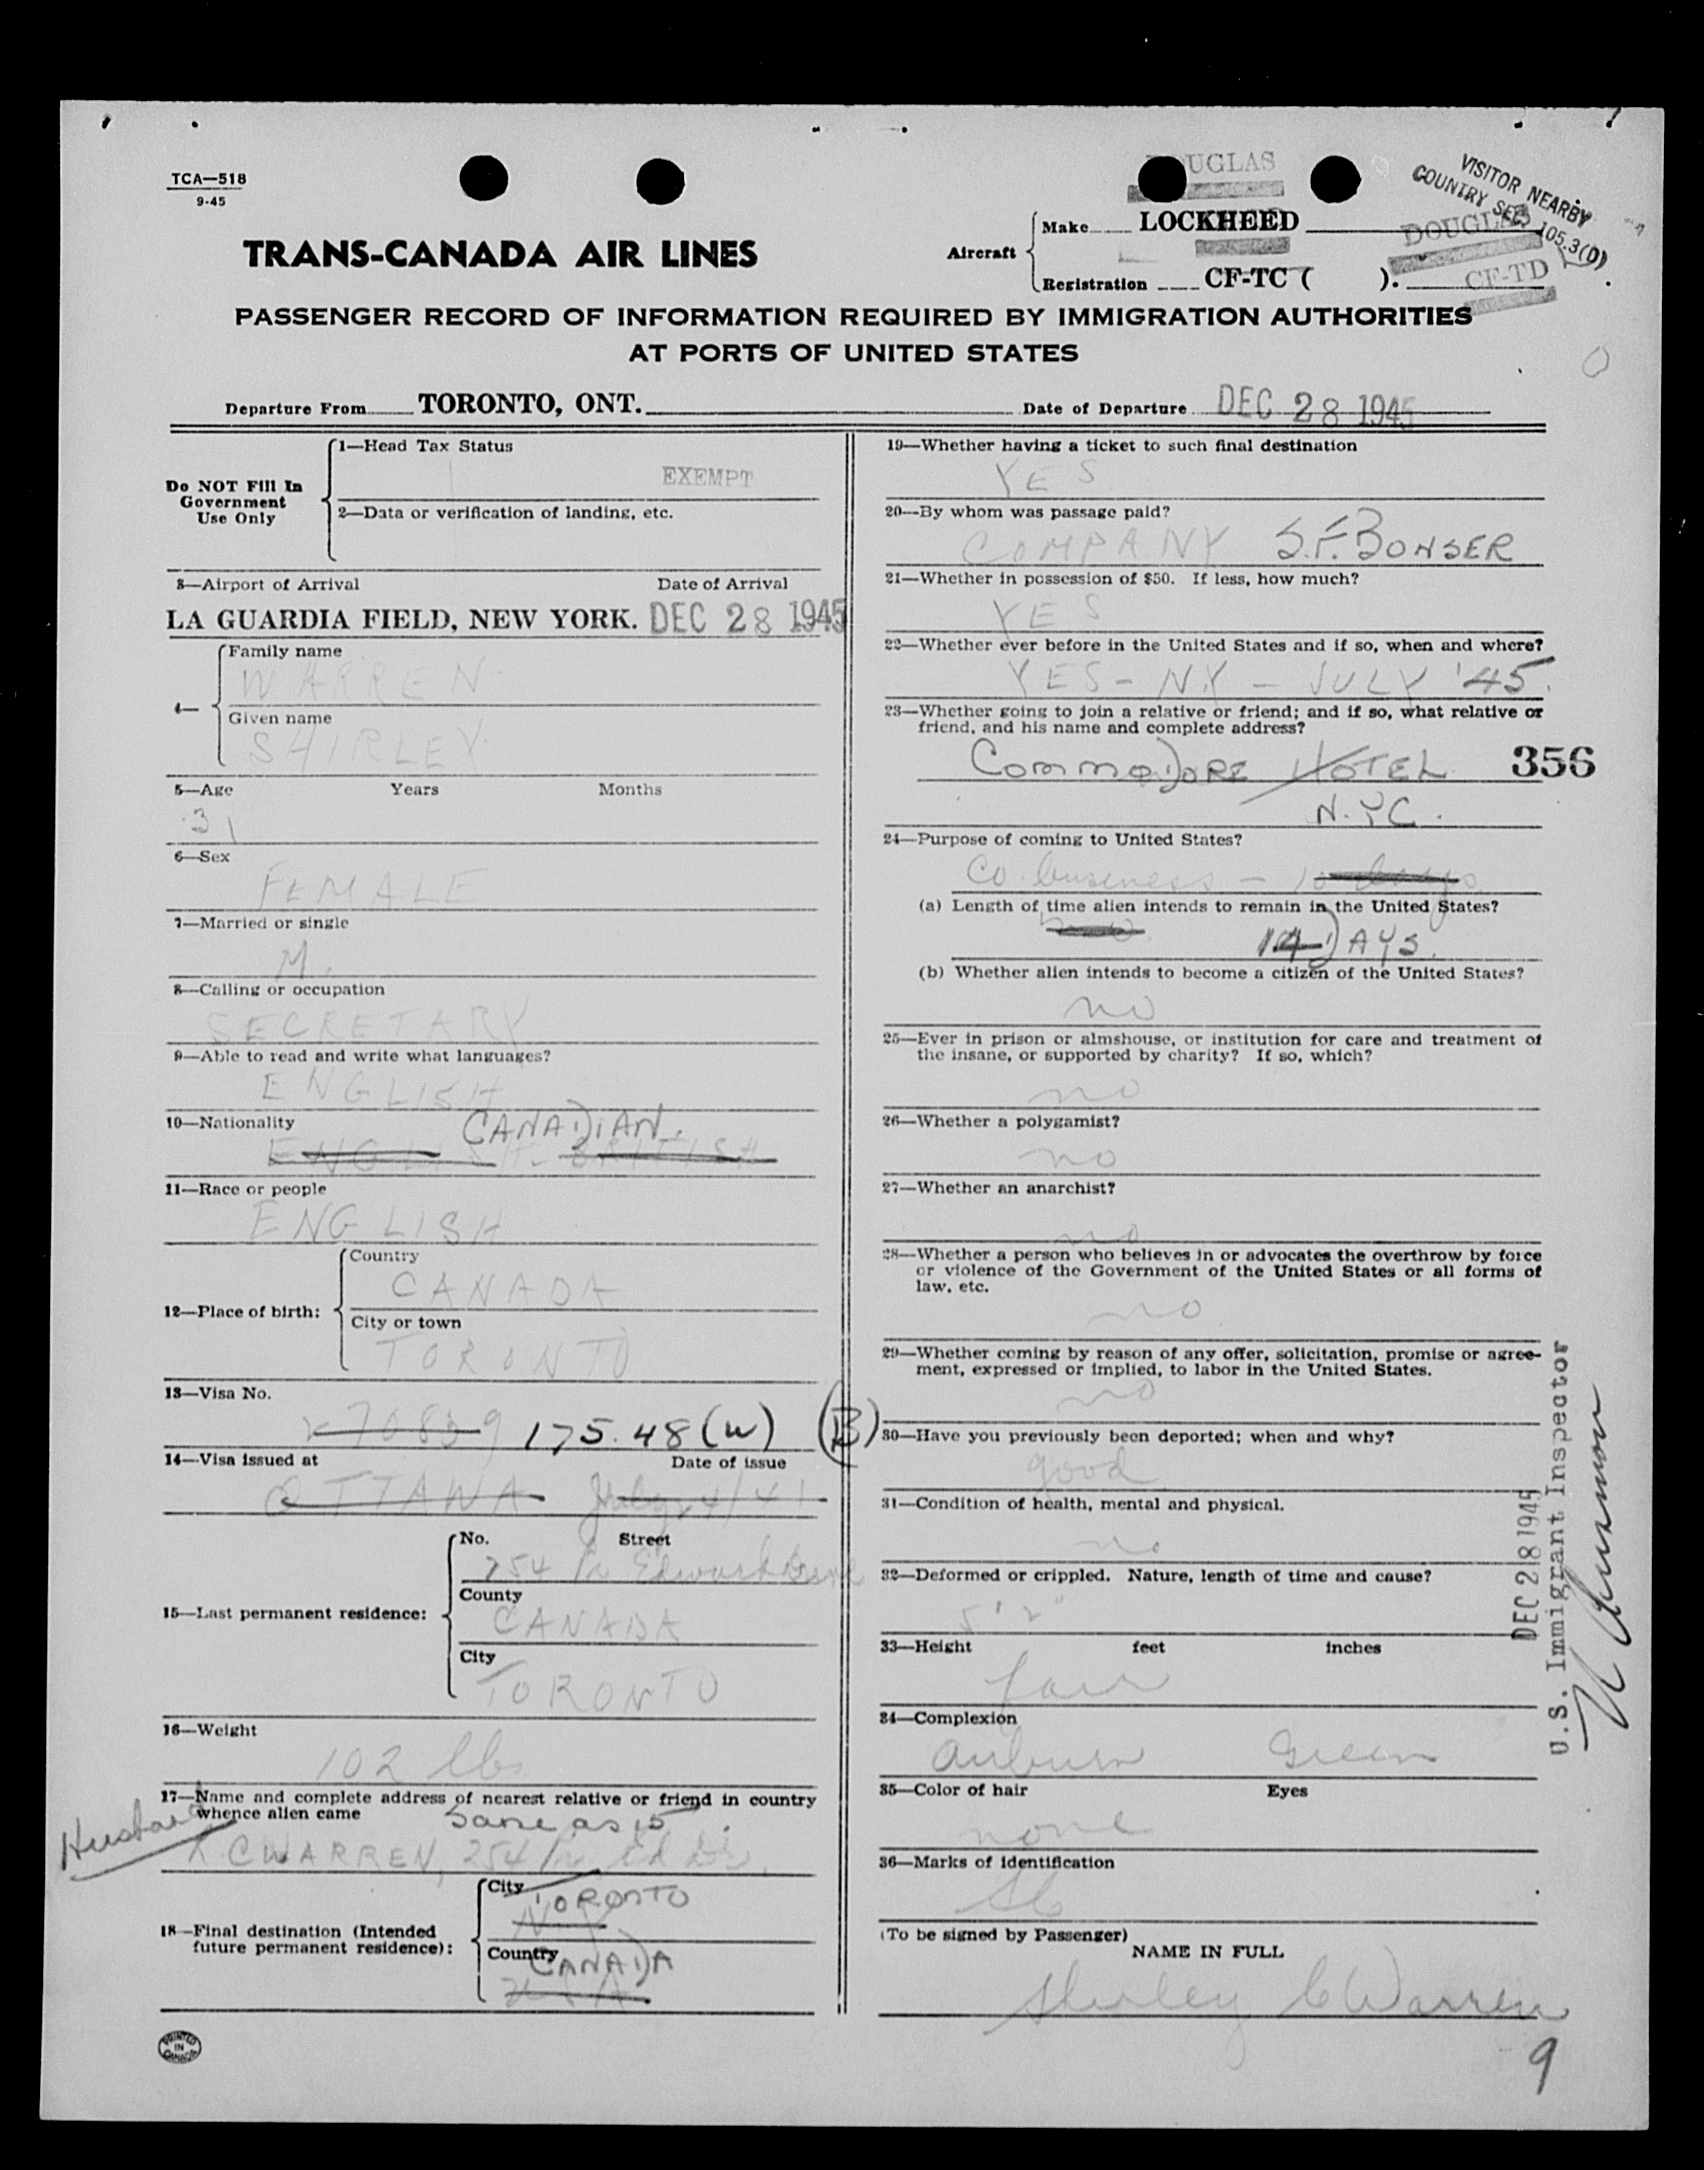 TCA—518
9-45
DOUGLAS
VISITOR NEARBY
COUNTRY SEC. 105.3(D)
TRANS-CANADA AIR LINES
Aircraft
Make LOCKHEED
DOUGLAS
Registration CF-TC ( ).
CF-TD
PASSENGER RECORD OF INFORMATION REQUIRED BY IMMIGRATION AUTHORITIES
AT PORTS OF UNITED STATES
Departure From TORONTO, ONT.
Date of Departure DEC 28 1945
Do NOT Fill In
Government
Use Only
1—Head Tax Status
EXEMPT
2—Data or verification of landing, etc.
3—Airport of Arrival Date of Arrival
LA GUARDIA FIELD, NEW YORK. DEC 28 1945
4—
Family name
WARREN
Given name
SHIRLEY
5—Age Years Months
31
6—Sex
FEMALE
7—Married or single
M.
8—Calling or occupation
SECRETARY
9—Able to read and write what languages?
ENGLISH
10—Nationality CANADIAN.
ENGLISH - BRITISH
11—Race or people
ENGLISH
12—Place of birth:
Country
CANADA
City or town
TORONTO
13—Visa No.
175.48 (W) (B)
14—Visa issued at Date of issue
OTTAWA July 4/41
15—Last permanent residence:
No. Street
254 Pr Edward Drive
County
CANADA
City
TORONTO
16—Weight
102 lbs
17—Name and complete address of nearest relative or friend in country
whence alien came Same as 15.
Husband
C WARREN, 254 Pr Ed Dr.
18—Final destination (Intended
future permanent residence):
City TORONTO
NY
Country CANADA
USA
PRINTED
IN
CANADA
19—Whether having a ticket to such final destination
YES
20—By whom was passage paid?
COMPANY S.F. BONSER
21—Whether in possession of $50. If less, how much?
YES
22—Whether ever before in the United States and if so, when and where?
YES - NY - JULY '45.
23—Whether going to join a relative or friend; and if so, what relative or
friend, and his name and complete address?
COMMODORE HOTEL 356
N.Y.C.
24—Purpose of coming to United States?
Co. business - 10 days
(a) Length of time alien intends to remain in the United States?
14 DAYS.
(b) Whether alien intends to become a citizen of the United States?
no
25—Ever in prison or almshouse, or institution for care and treatment of
the insane, or supported by charity? If so, which?
no
26—Whether a polygamist?
no
27—Whether an anarchist?
no
28—Whether a person who believes in or advocates the overthrow by force
or violence of the Government of the United States or all forms of
law, etc.
no
29—Whether coming by reason of any offer, solicitation, promise or agree-
ment, expressed or implied, to labor in the United States.
no
30—Have you previously been deported; when and why?
good
31—Condition of health, mental and physical.
no
32—Deformed or crippled. Nature, length of time and cause?
5' 2"
33—Height feet inches
fair
34—Complexion
auburn Green
35—Color of hair Eyes
none
36—Marks of identification
(To be signed by Passenger)
NAME IN FULL
Shirley C Warren
9
DEC 28 1945
U.S. Immigrant Inspector